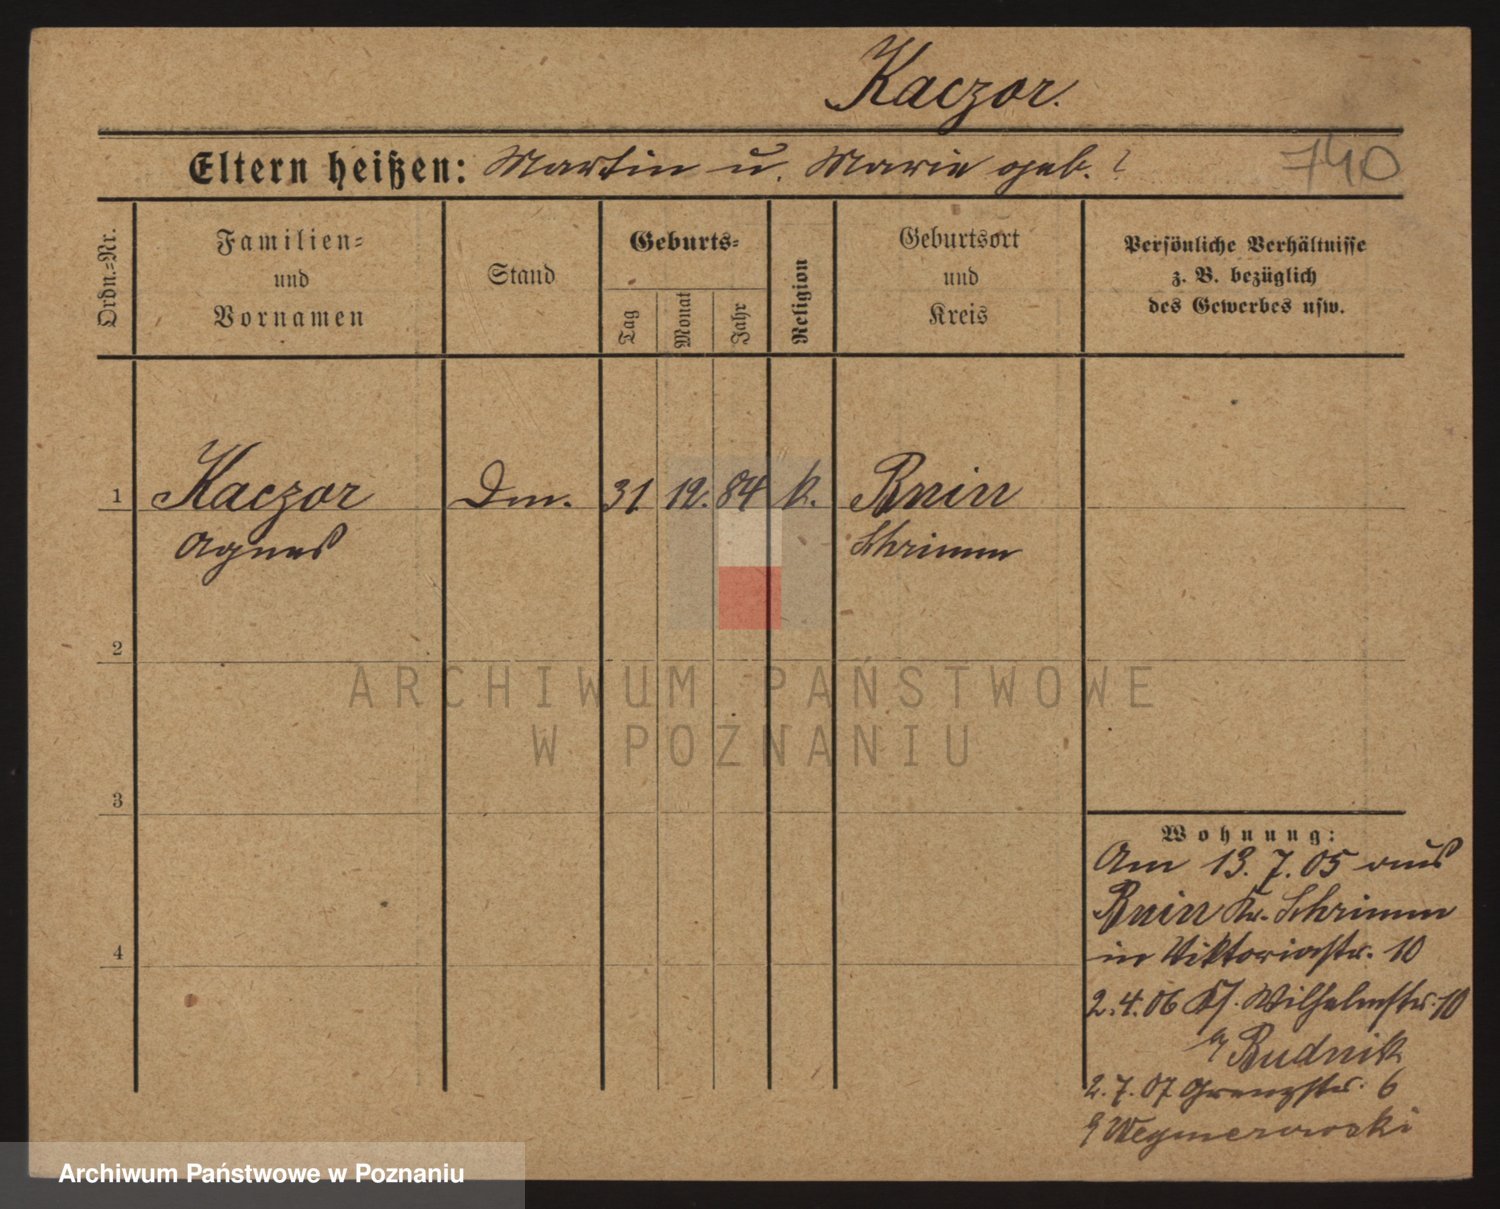 Kaczor.
Eltern heißen: Martin u. Marie geb. ?
740
Ordn.=Nr.
Familien=
und
Vornamen
Stand
Geburts=
Tag
Monat
Jahr
Religion
Geburtsort
und
Kreis
Persönliche Verhältnisse
z. B. bezüglich
des Gewerbes usw.
1 Kaczor Dm. 31 12. 84 k. Bnin
Agnes Schrimm
2
3
4
ARCHIWUM PAŃSTWOWE
W POZNANIU
Wohnung:
Am 13. 7. 05 aus
Bnin Kr. Schrimm
in Viktoriastr. 10
2. 4. 06 Wilhelmstr. 10
Budnik
2. 7. 07 Grenzstr. 6
Archiwum Państwowe w Poznaniu